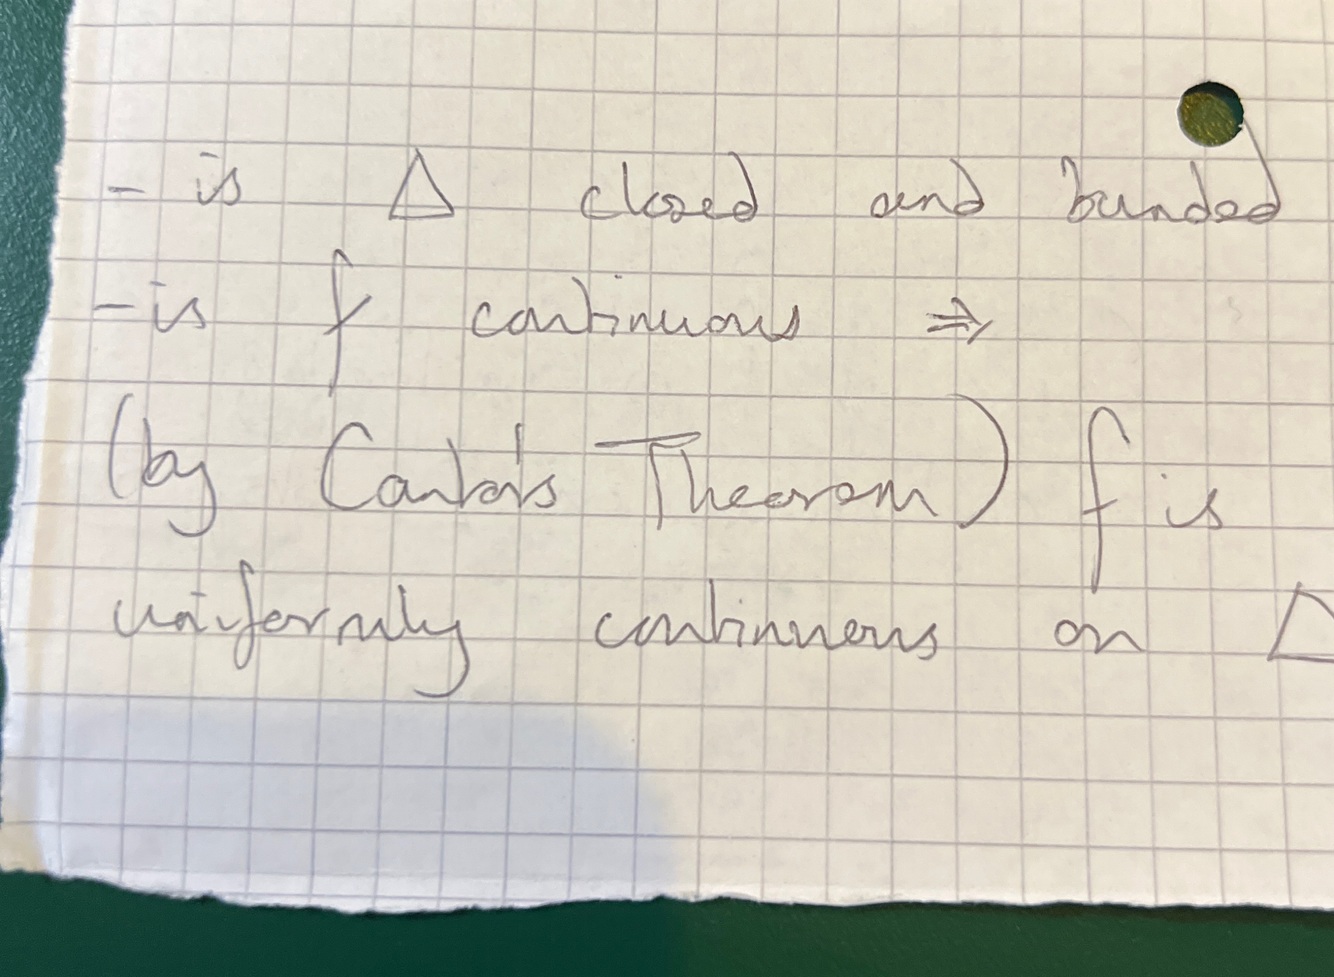 - is Δ closed and bunded
- is f continuous ⇒
(by Cantor's Theorem) f is
uniformly continuous on Δ